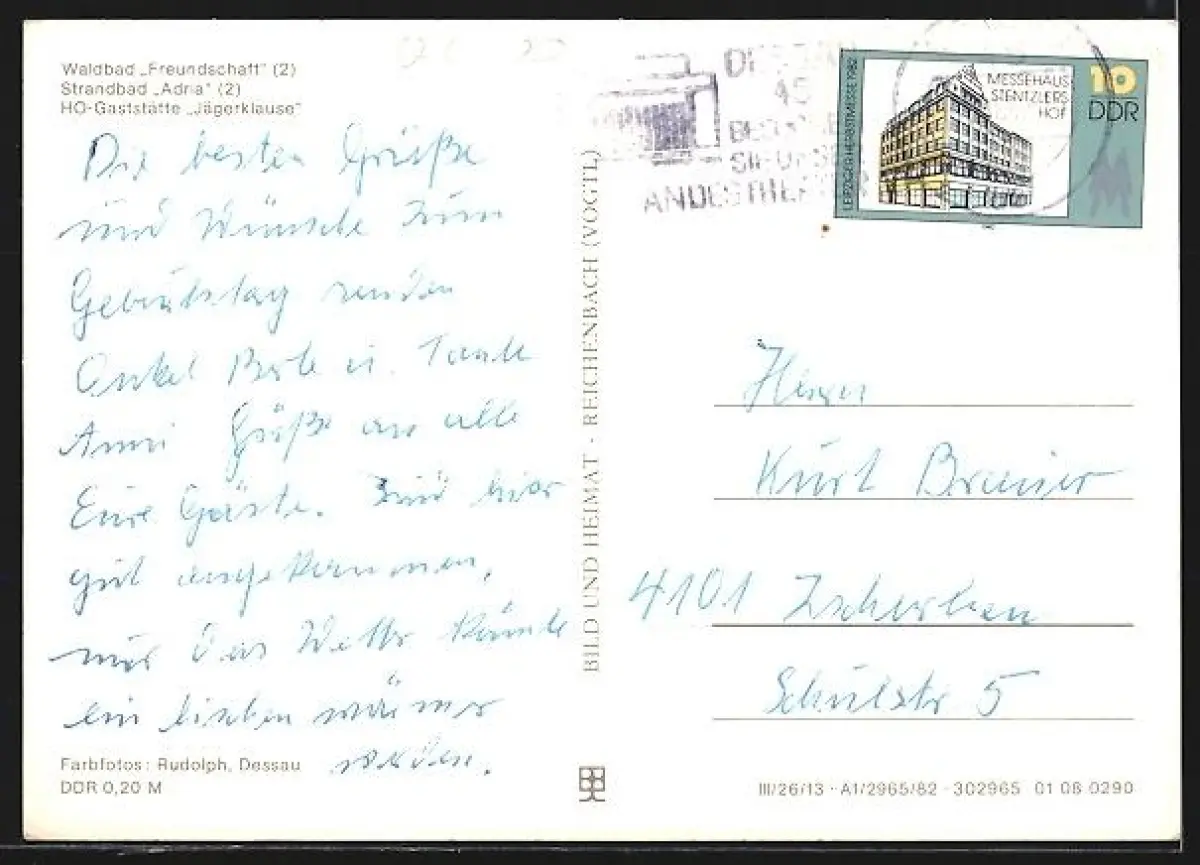 Waldbad „Freundschaft" (2)
Strandbad „Adria" (2)
HO-Gaststätte „Jägerklause"
Die besten Grüße
und Wünsche zum
Geburtstag senden
Onkel u. Tante
Anni Grüße an alle
Eure Gäste. Sind hier
gut angekommen,
nur das Wetter könnte
ein bischen wärmer
werden.
Farbfotos: Rudolph, Dessau
DDR 0,20 M
BILD UND HEIMAT · REICHENBACH (VOGTL)
SIE UNSER
LEIPZIGER HERBSTMESSE 1982
MESSEHAUS
STENTZLERS
HOF
10
DDR
Herrn
Kurt Breuer
4101 Zscherben
Schulstr 5
III/26/13 · A1/2965/82 · 302965 01 08 0290